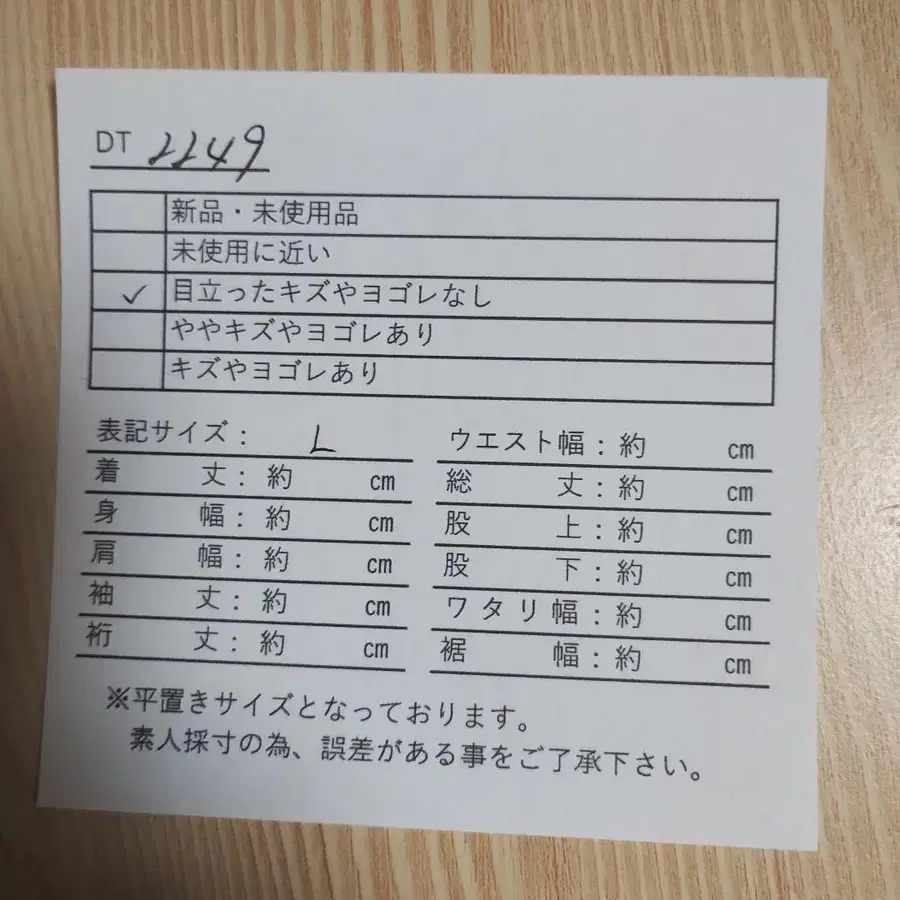 DT 2249
新品・未使用品
未使用に近い
✓ 目立ったキズやヨゴレなし
ややキズやヨゴレあり
キズやヨゴレあり
表記サイズ: L
着丈:約 cm
身幅:約 cm
肩幅:約 cm
袖丈:約 cm
裄丈:約 cm
ウエスト幅:約 cm
総丈:約 cm
股上:約 cm
股下:約 cm
ワタリ幅:約 cm
裾幅:約 cm
※平置きサイズとなっております。
素人採寸の為、誤差がある事をご了承下さい。